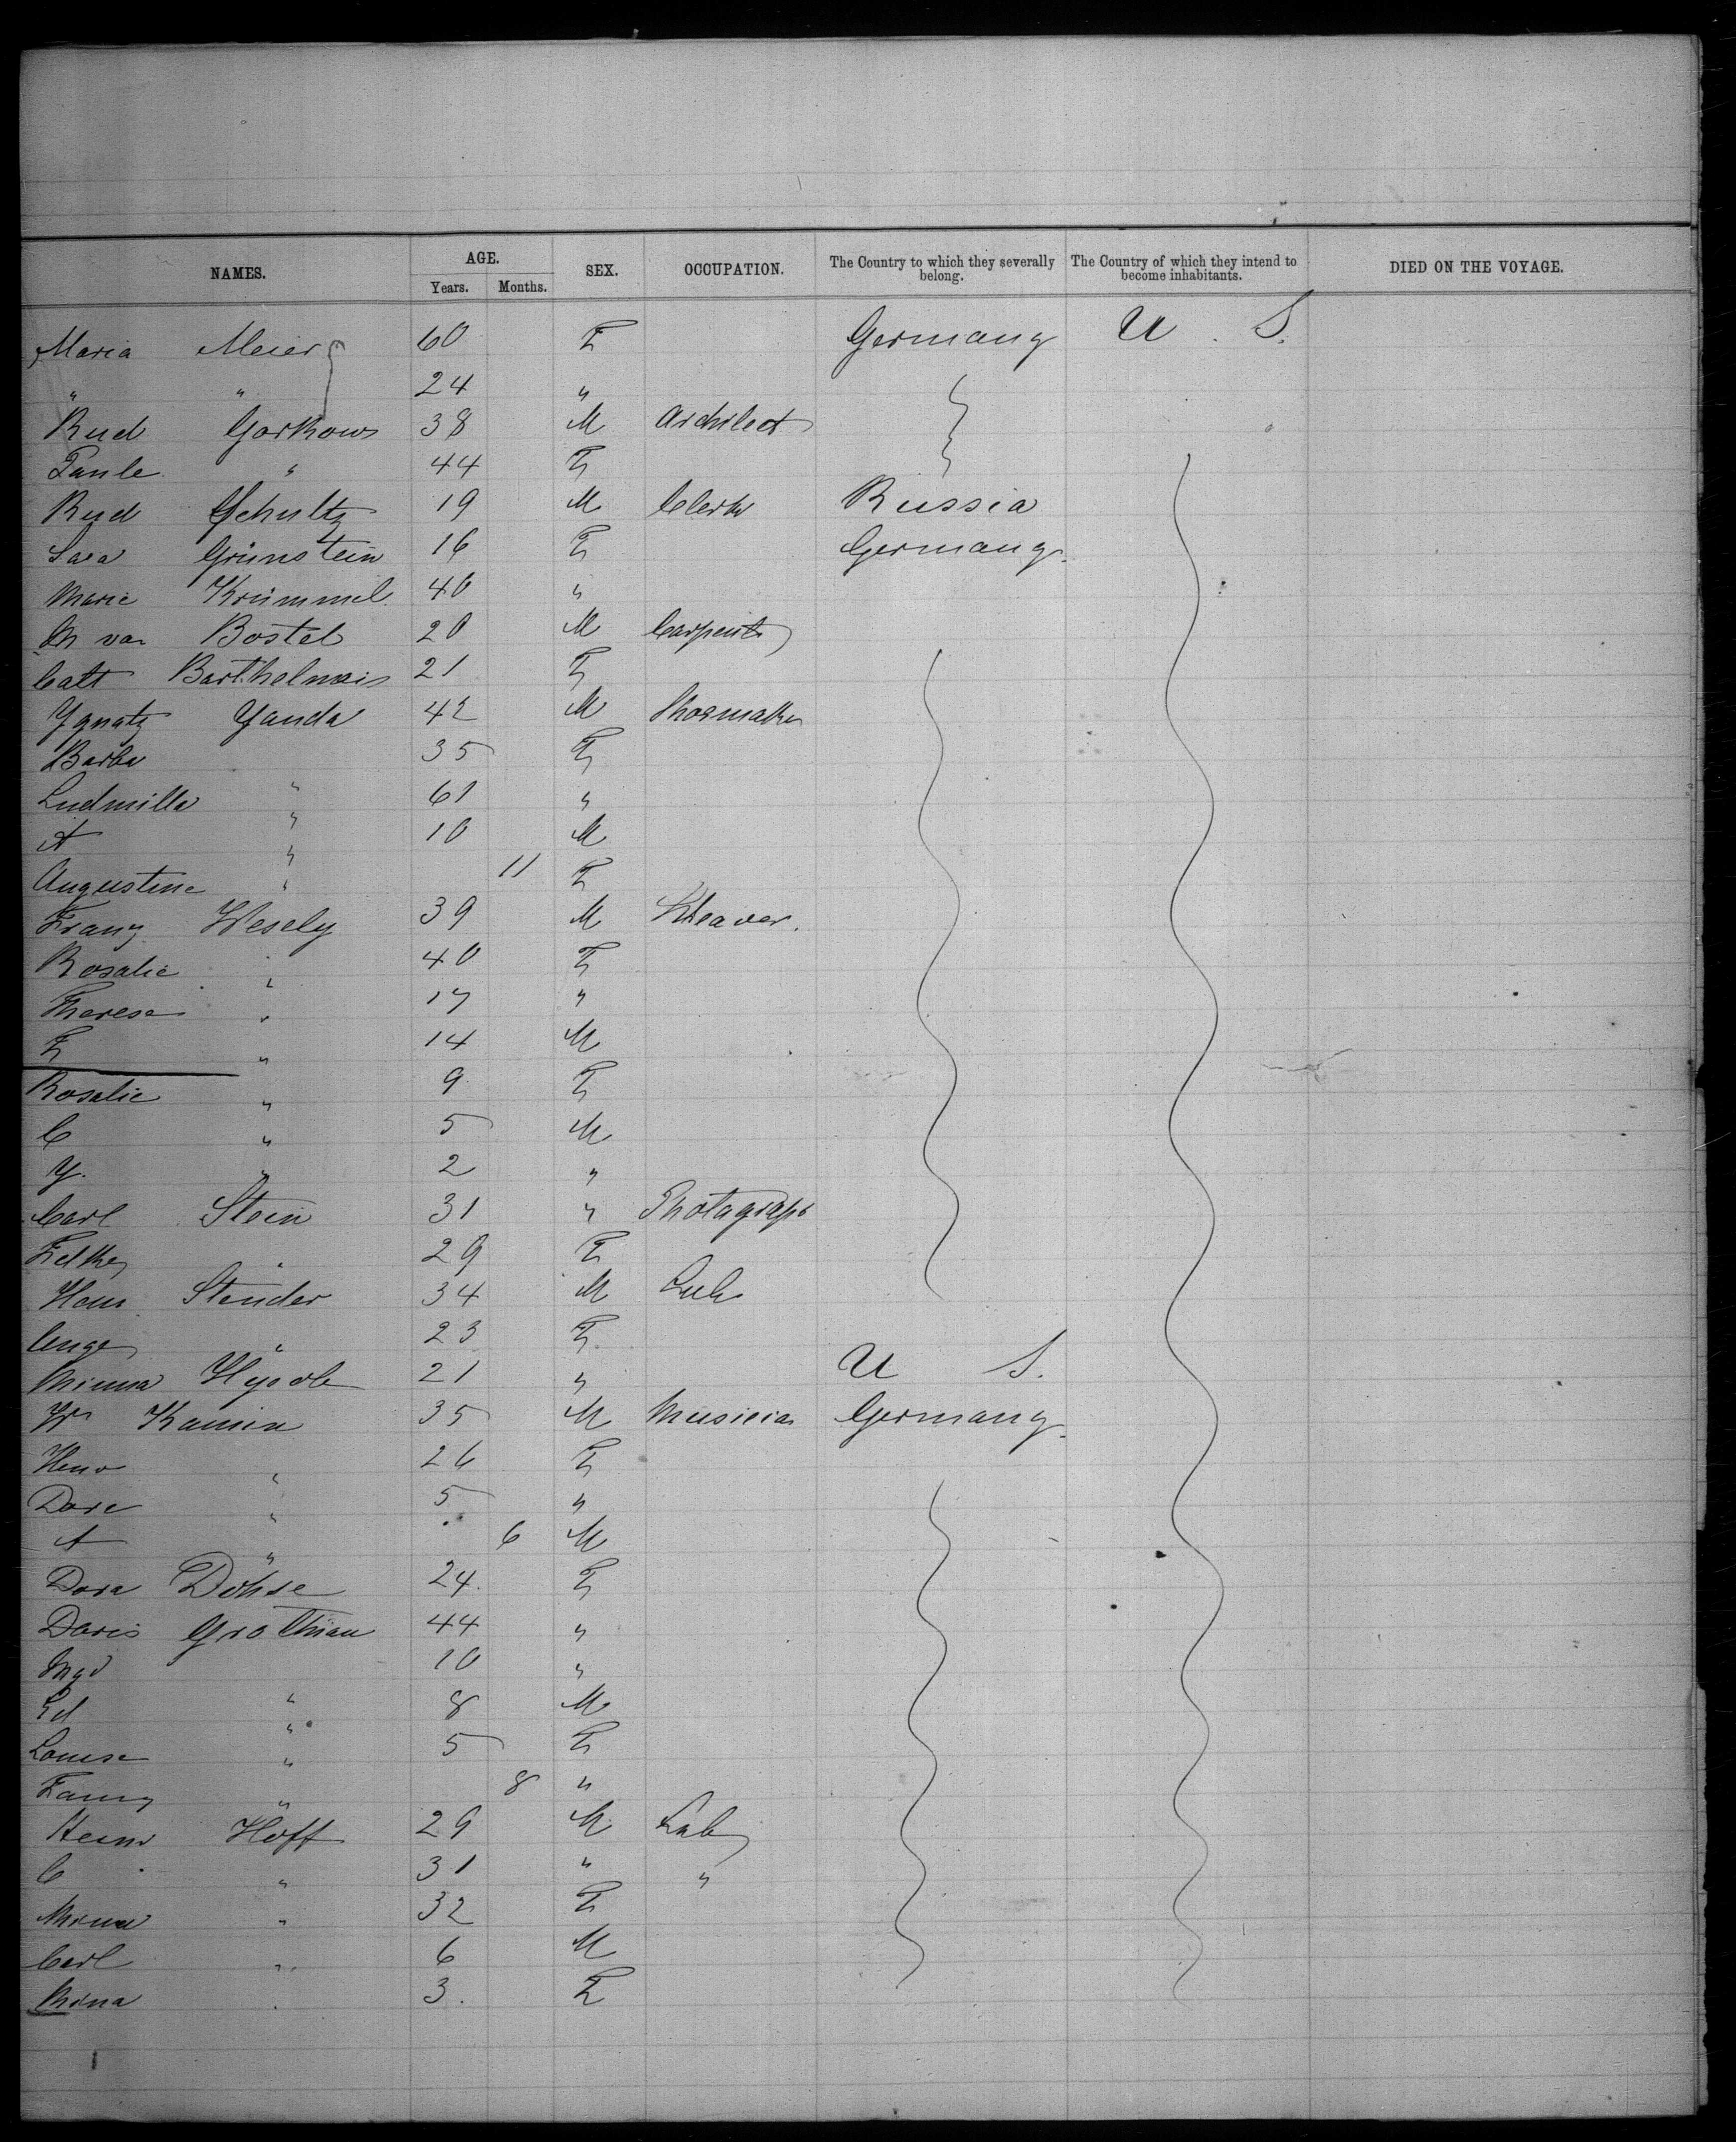 NAMES. AGE. Years. Months. SEX. OCCUPATION. The Country to which they severally belong. The Country of which they intend to become inhabitants. DIED ON THE VOYAGE.
Maria Meier 60 F Germany U. S.
" " 24 "
Rud Gorkow 38 M Architect
Paule " 44 F
Rud Schultz 19 M Clerk Russia
Sara Grünstein 16 F Germany.
Marie Krümmel 40 "
M van Bostel 20 M Carpent
Catt Barthelmeis 21 F
Ygnatz Yanda 42 M Shoemaker
Barba " 35 F
Ludmilla " 61 "
A " 10 M
Augustine " 11 F
Franz Wesely 39 M Weaver.
Rosalie " 40 F
Therese " 17 "
F " 14 M
Rosalie " 9 F
C " 5 M
Y. " 2 "
Carl Stein 31 " Photograph
" 29 F
Hans Stender 34 M Lab
" 23 F
Minna 21 " U S.
W Kamin 35 M Musician Germany.
Henr " 26 F
Dora " 5 "
A " 6 M
Dora Döhse 24 F
Doris Grothian 44 "
10 "
Ed " 8 M
Louise " 5 F
Fanny " 8 "
Heinr Hoff 29 M Lab
C " 31 " "
Minna " 32 F
Carl " 6 M
Mina " 3. F